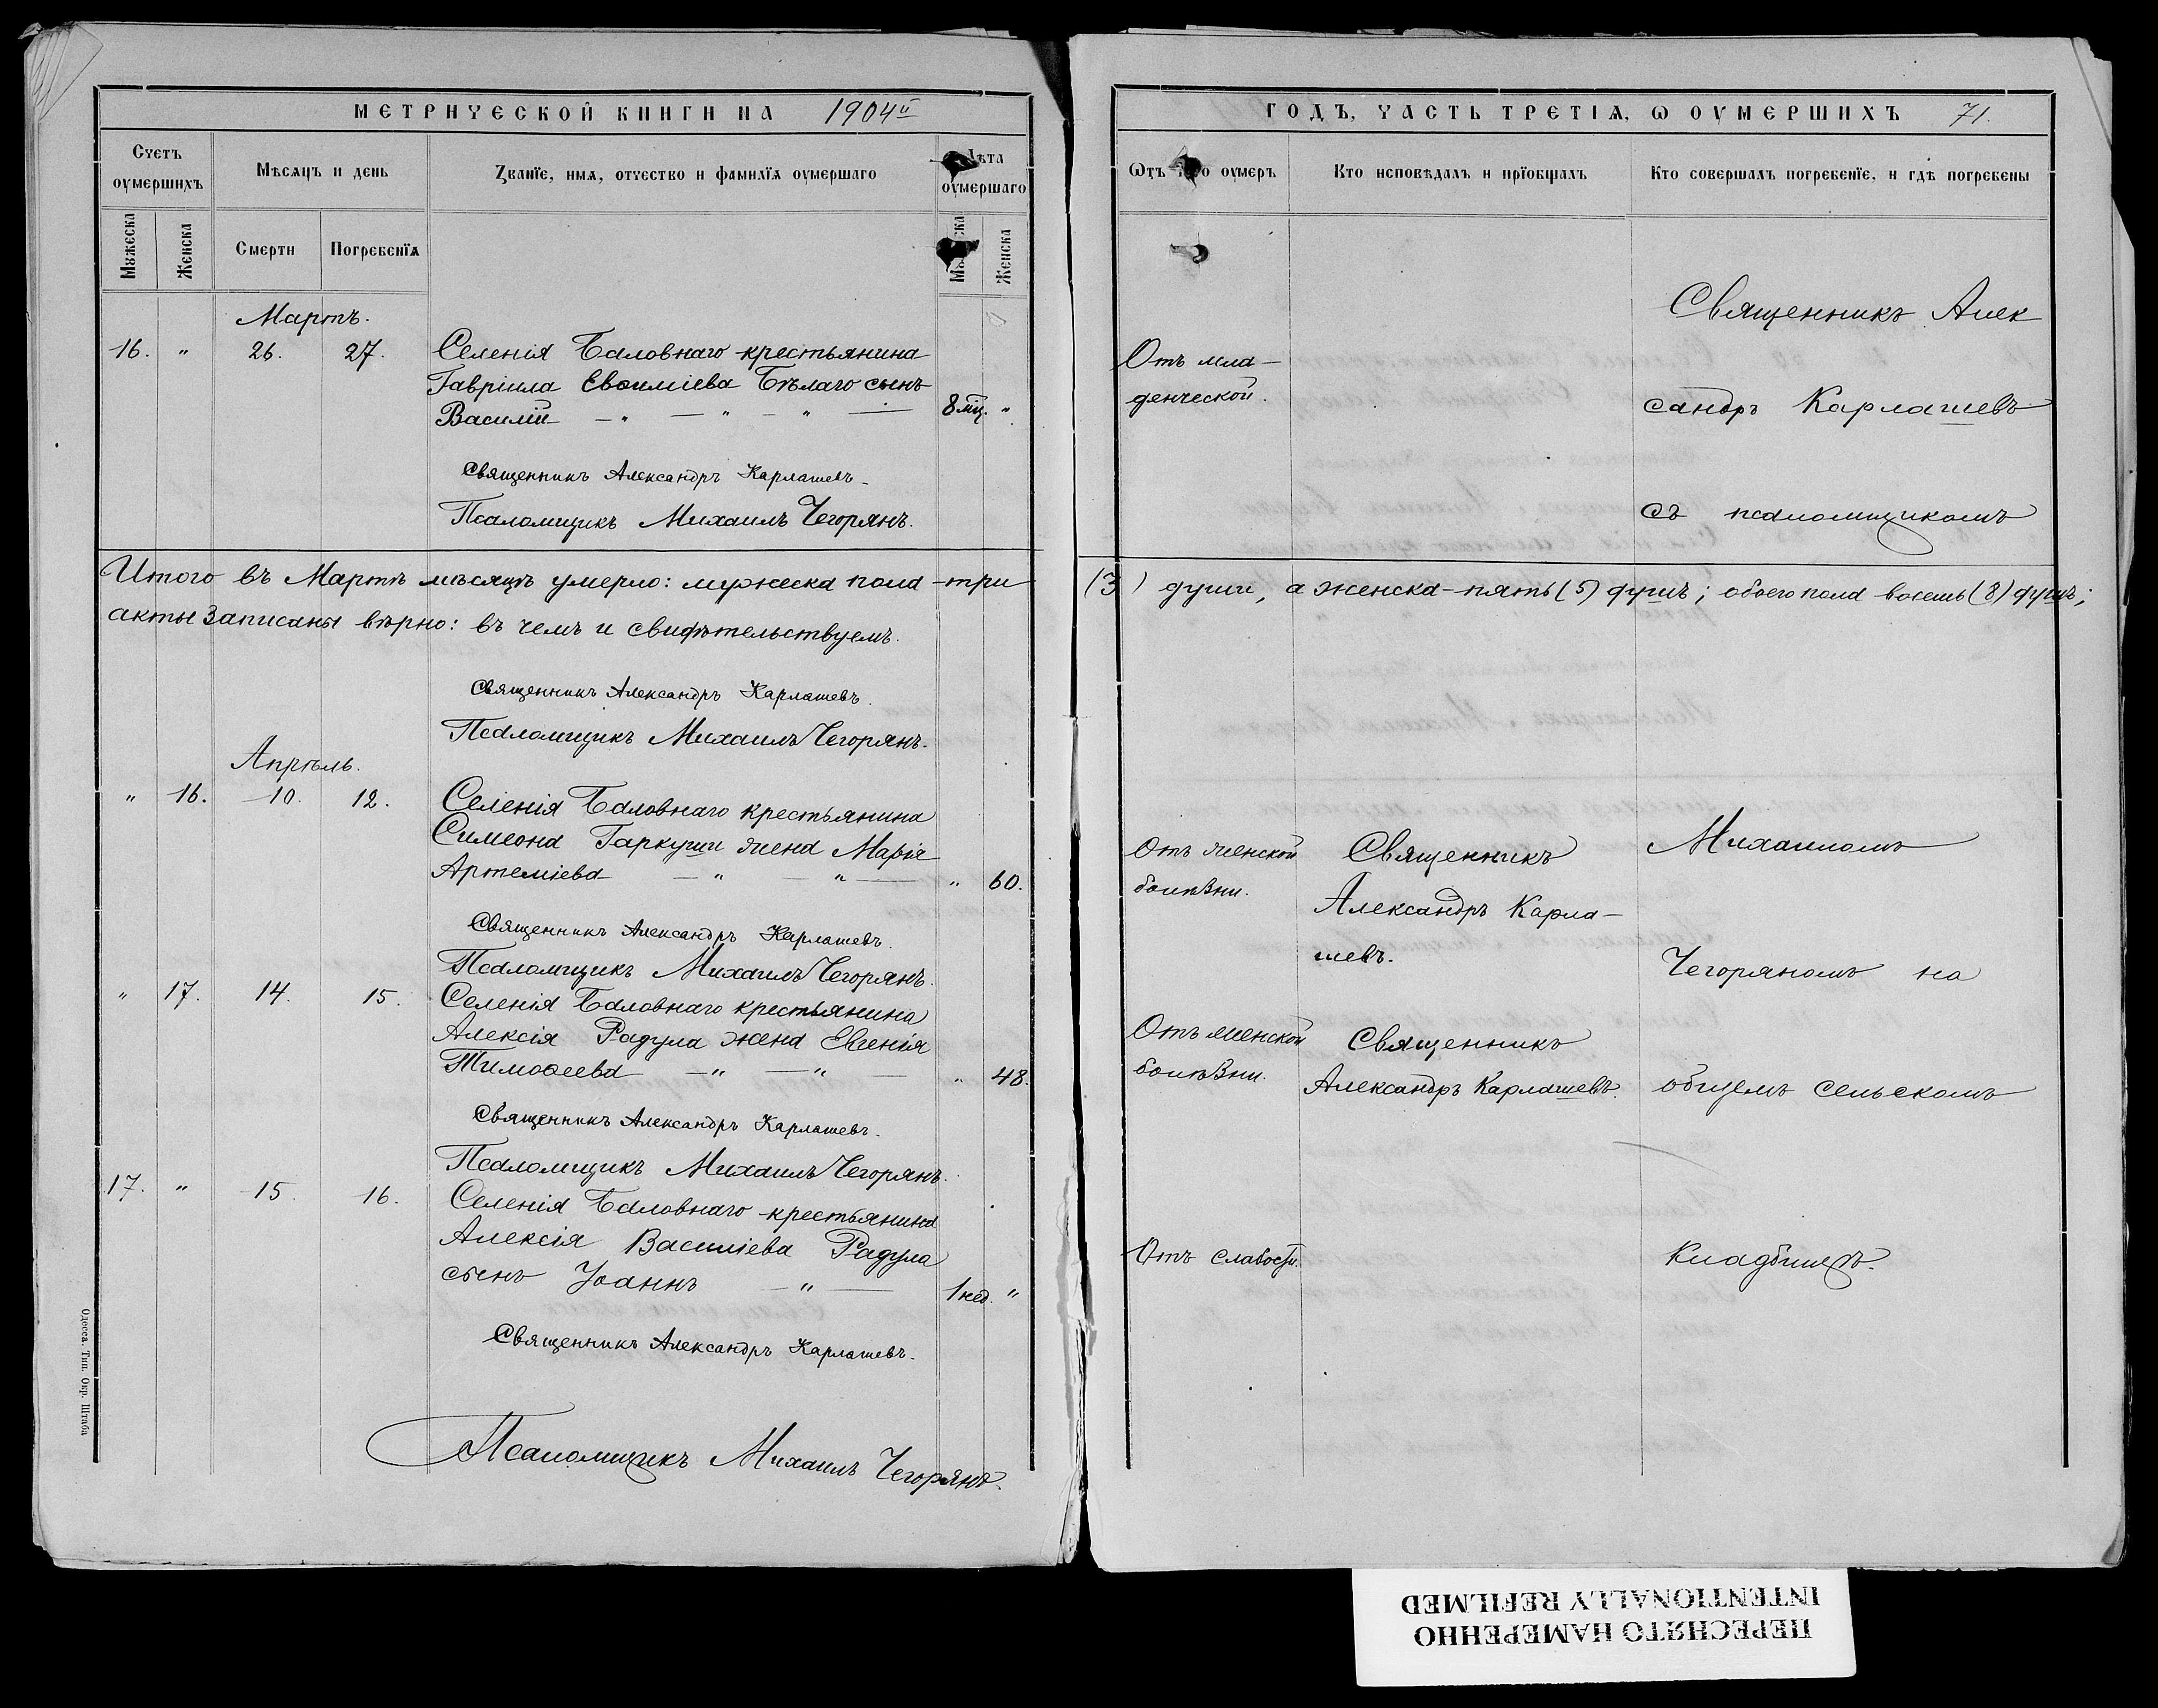 МЕТРИЧЕСКОЙ КНИГИ НА 1904й
Счетъ оумершихъ
Мѣсяцъ и день
Званїе, имя, отчество и фамилїя оумершаго
Лѣта оумершаго
Мужеска
Женска
Смерти
Погребенїя
Женска
Мартъ.
16. " 26. 27. Селенія Баловнаго крестьянина
Гавріила Евѳиміева Бѣлаго сынъ
Василій — " — " — " — 8 мц. "
Священникъ Александръ Карлашевъ.
Псаломщикъ Михаилъ Чегорянъ.
Итого въ Мартѣ мѣсяцѣ умерло: мужеска пола - три
акты записаны вѣрно: въ чемъ и свидѣтельствуемъ.
Священникъ Александръ Карлашевъ.
Псаломщикъ Михаилъ Чегорянъ.
Апрѣль.
" 16. 10. 12. Селенія Баловнаго крестьянина
Симеона Гаркуши жена Марія
Артеміева — " — " — " 60.
Священникъ Александръ Карлашевъ.
Псаломщикъ Михаилъ Чегорянъ.
" 17. 14. 15. Селенія Баловнаго крестьянина
Алексія Радула жена Евгенія
Тимоѳеева — " — " — " 48.
Священникъ Александръ Карлашевъ.
Псаломщикъ Михаилъ Чегорянъ.
17. " 15. 16. Селенія Баловнаго крестьянина
Алексія Василіева Радула
сынъ Іоаннъ — " — 1 нед. "
Священникъ Александръ Карлашевъ.
Псаломщикъ Михаилъ Чегорянъ.
Одесса. Тип. Окр. Штаба
ГОДЪ, ЧАСТЬ ТРЕТІѦ, Ѡ ОУМЕРШИХЪ 71.
Ѿтъ чего оумеръ
Кто исповѣдалъ и прїобщалъ
Кто совершалъ погребенїе, и гдѣ погребены
Священникъ Алек
Отъ мла-
денческой.
сандръ Карлашевъ
съ псаломщикомъ
(3) души, а женска - пять (5) душъ; обоего пола восемь (8) душъ;
Отъ женской
болѣзни.
Священникъ
Александръ Карла-
шевъ.
Михаиломъ
Чегоряномъ на
Отъ женской
болѣзни.
Священникъ
Александръ Карлашевъ.
общемъ сельскомъ
Отъ слабости.
кладбищѣ.
ПЕРЕСНЯТО НАМЕРЕННО
INTENTIONALLY REFILMED